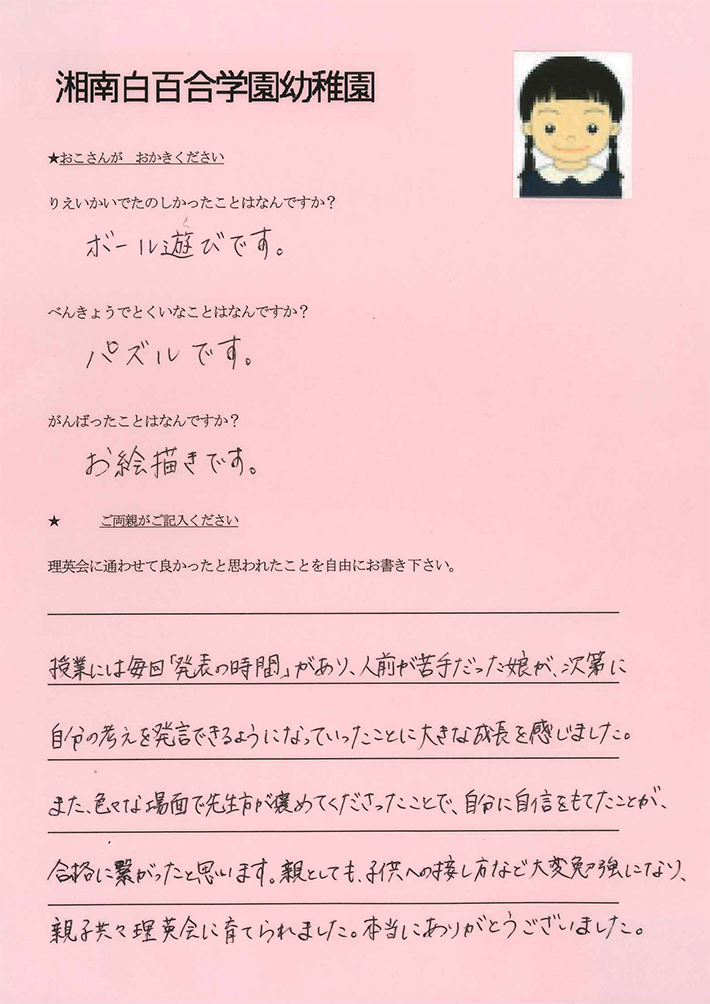 湘南白百合学園幼稚園
★おこさんが　おかきください
りえいかいでたのしかったことはなんですか？
ボール遊びです。
べんきょうでとくいなことはなんですか？
パズルです。
がんばったことはなんですか？
お絵描きです。
★　ご両親がご記入ください
理英会に通わせて良かったと思われたことを自由にお書き下さい。
授業には毎回「発表の時間」があり、人前が苦手だった娘が、次第に
自分の考えを発言できるようになっていったことに大きな成長を感じました。
また、色々な場面で先生方が褒めてくださったことで、自分に自信をもてたことが、
合格に繋がったと思います。親としても、子供への接し方など大変勉強になり、
親子共々理英会に育てられました。本当にありがとうございました。